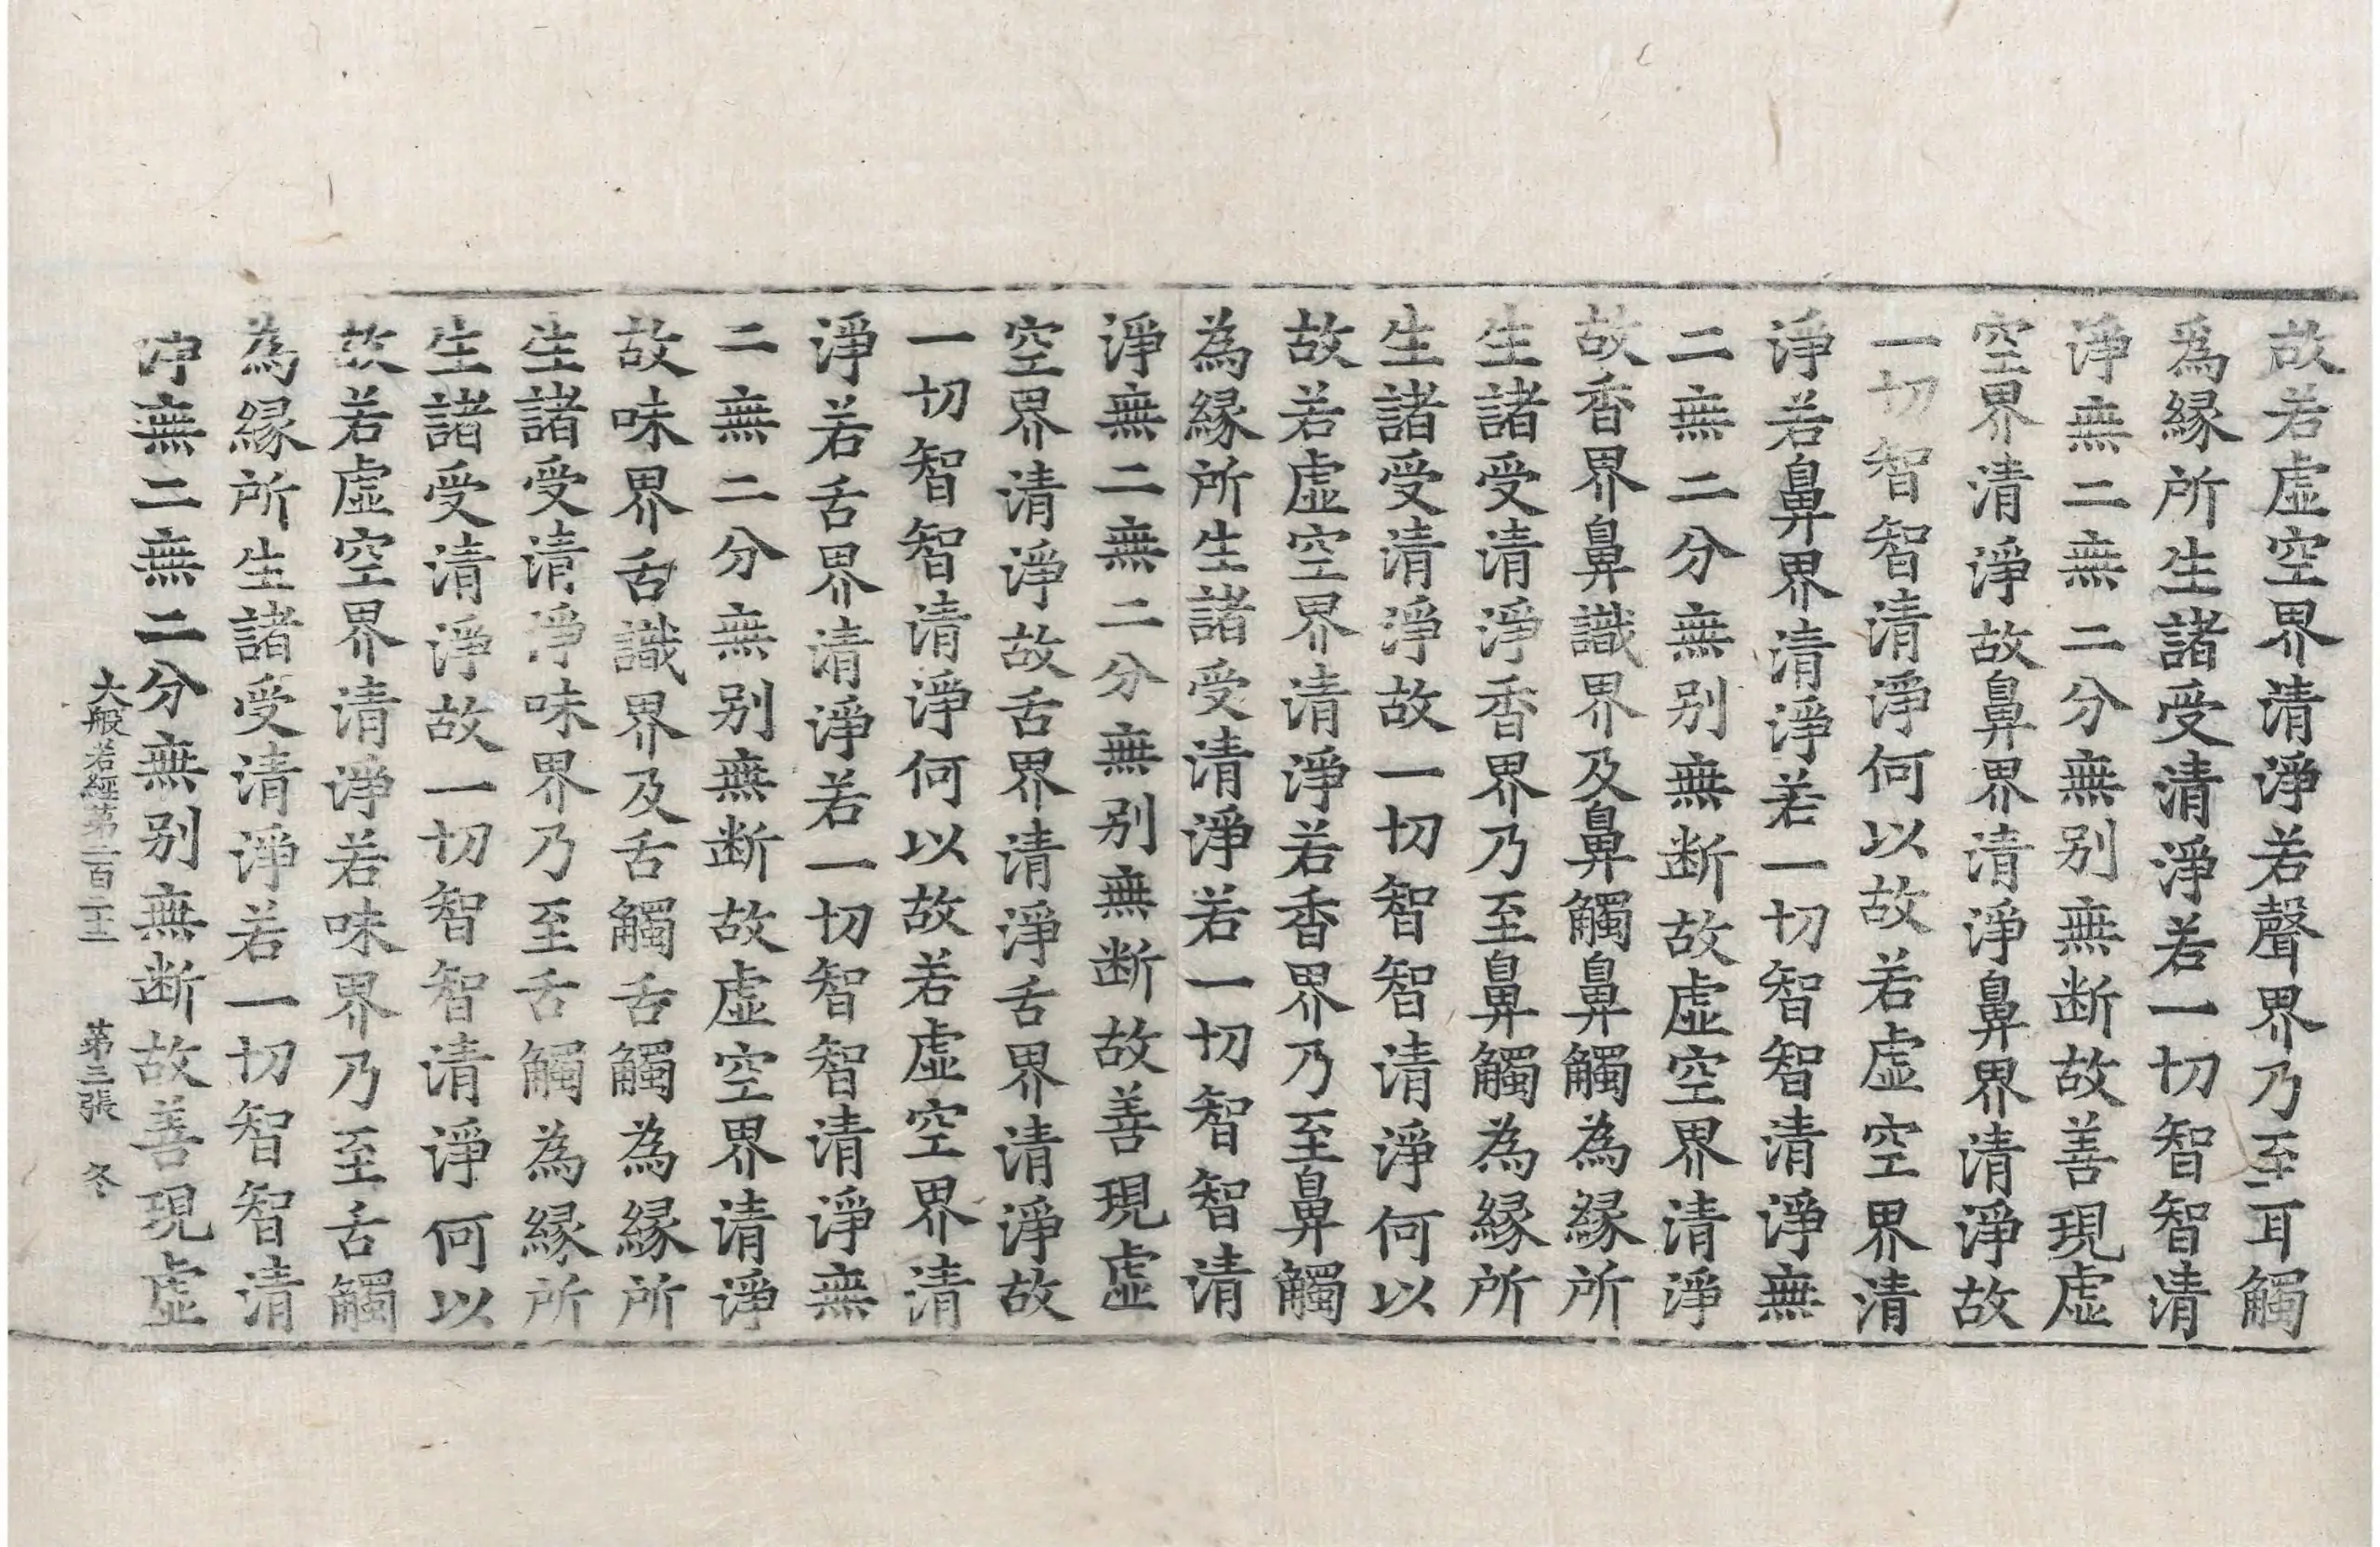 故若虛空界清淨若聲界乃至耳觸
爲緣所生諸受清淨若一切智智清
淨無二無二分無別無断故善現虛
空界清淨故鼻界清淨鼻界清淨故
一切智智清淨何以故若虛空界清
淨若鼻界清淨若一切智智清淨無
二無二分無別無断故虛空界清淨
故香界鼻識界及鼻觸鼻觸為緣所
生諸受清淨香界乃至鼻觸為緣所
生諸受清淨故一切智智清淨何以
故若虛空界清淨若香界乃至鼻觸
為緣所生諸受清淨若一切智智清
淨無二無二分無別無断故善現虛
空界清淨故舌界清淨舌界清淨故
一切智智清淨何以故若虛空界清
淨若舌界清淨若一切智智清淨無
二無二分無別無断故虛空界清淨
故味界舌識界及舌觸舌觸為緣所
生諸受清淨味界乃至舌觸為緣所
生諸受清淨故一切智智清淨何以
故若虛空界清淨若味界乃至舌觸
為緣所生諸受清淨若一切智智清
淨無二無二分無別無断故善現虛
大般若經第二百二十一 第三張 冬